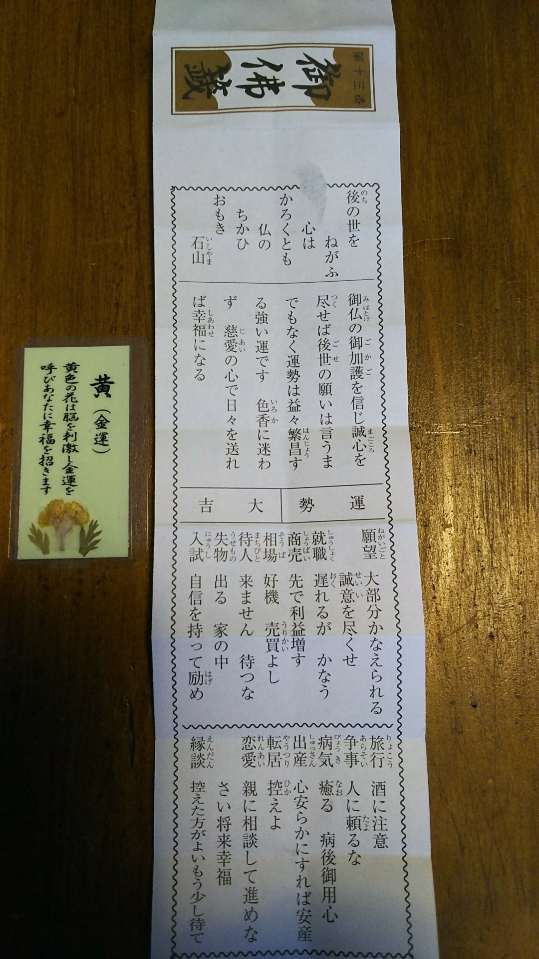 第十三番
御佛籤
後の世を
ねがふ
心は
かろくとも
仏の
ちかひ
おもき
石山
御仏の御加護を信じ誠心を
尽せば後世の願いは言うま
でもなく運勢は益々繁昌す
る強い運です 色香に迷わ
ず 慈愛の心で日々を送れ
ば幸福になる
運勢
大吉
願望 大部分かなえられる
誠意を尽くせ
就職 遅れるが かなう
商売 先で利益増す
相場 好機 売買よし
待人 来ません 待つな
失物 出る 家の中
入試 自信を持って励め
旅行 酒に注意
争事 人に頼るな
病気 癒る 病後御用心
出産 心安らかにすれば安産
転居 控えよ
恋愛 親に相談して進めな
さい将来幸福
縁談 控えた方がよいもう少し待て
黄(金運)
黄色の花は脳を刺激し金運を
呼びあなたに幸福を招きます